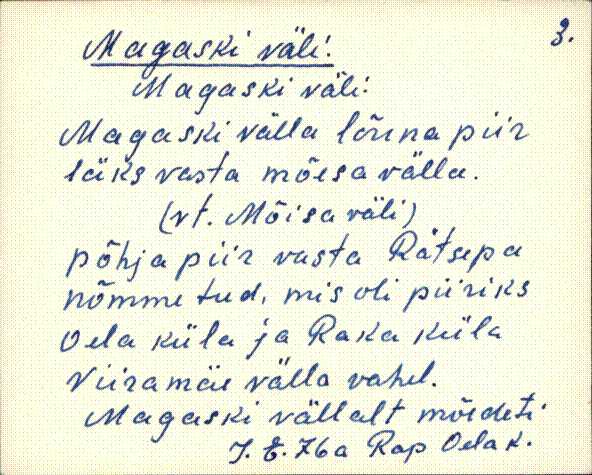 3.
Magaski väli.
Magaski väli.
Magaski välla lõuna piir
läks vasta mõesa välla.
(vt. Mõisa väli)
põhja piir vasta Rätsepa
nõmme tud, mis oli piiriks
Oela küla ja Raka küla
Viiramäe välla vahel.
Magaski vällalt mõideti
J. E. 76a Rap Oela k.